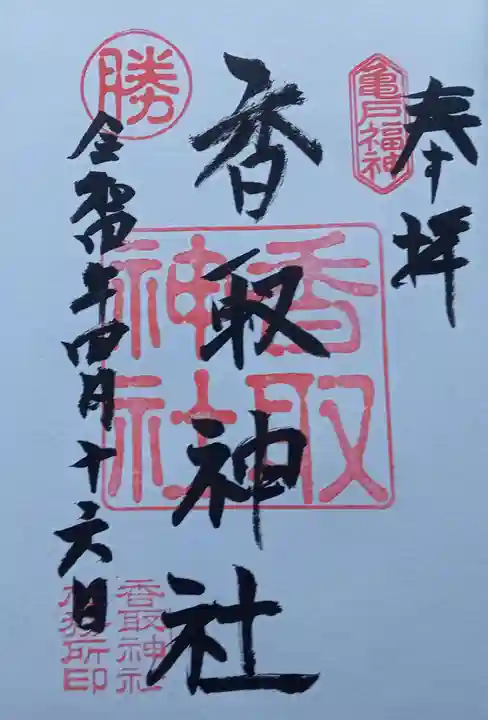 奉拝
亀戸福神
香取神社
香取神社
勝
令和四年四月十六日
香取神社
社務所印